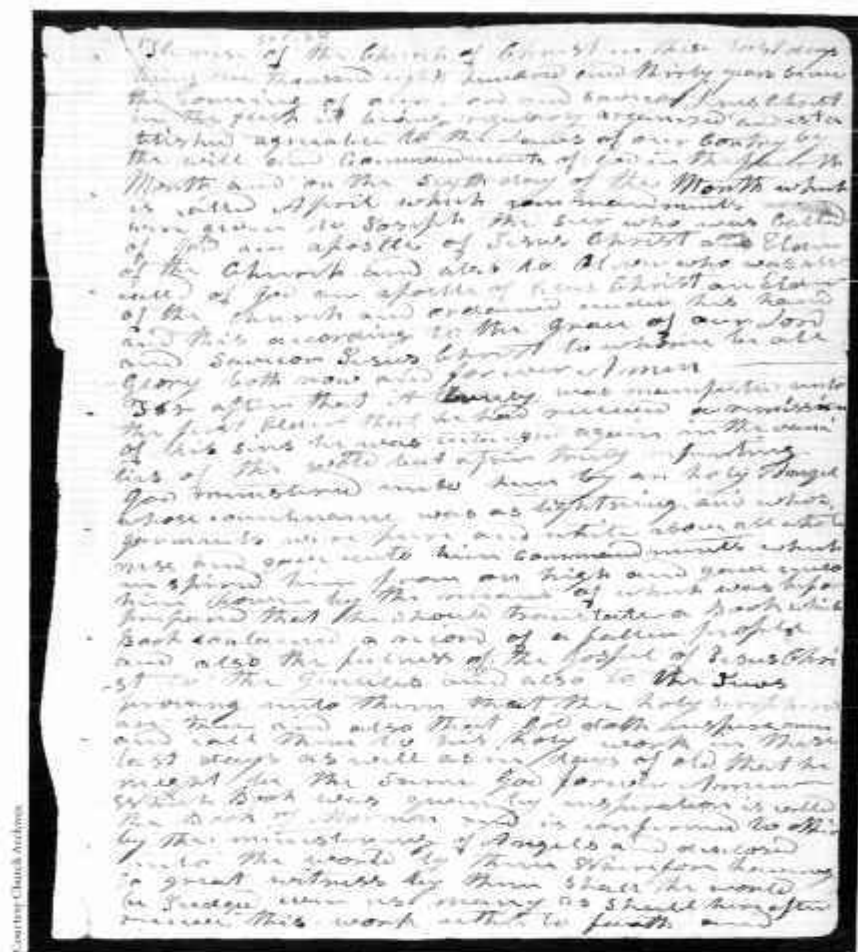 The rise of the Church of Christ in these last days
being one thousand eight hundred and thirty years since
the comeing of our Lord and saviour Jesus Christ
in the flesh it being regularly organized and esta
blished agreeable to the Laws of our Contry by
the will and Commandments of God in the
Month and on the Sixth day of the Month which
is called April which commandments
were given to Joseph the seer who was called
of God an apostle of Jesus Christ and Elder
of the Church and also to Oliver who was also
called of God an apostle of Jesus Christ an Elder
of the church and ordained under his hand
and this according to the grace of our Lord
and saviour Jesus Christ to whome be all
Glory both now and forever Amen
For after that it truly was manifested unto
the first Elder that he had received a remission
of his sins he was again in the vani
ties of the world but after truly repenting
God ministered unto him by an holy Angel
whose countenance was as lightning and whose
garments were pure and white above all white
ness and gave unto him commandments which
inspired him from on high and gave unto
him power by the means of which was before
prepared that he should translate a Book which
Book contained a record of a fallen people
and also the fulness of the gospel of Jesus Chri
st to the gentiles and also to the Jews
proving unto them that the holy scriptures
are true and also that God doth inspire men
and call them to his holy work in these
last days as well as in days of old that he
might be the same God forever Amen
Which Book was given by inspiration is called
the Book of Mormon and is confirmed to others
by the ministering of Angels and declared
unto the world by them Wherefore having
so great witness by them shall the world
be Judged even as many as shall hereafter
receive this work either to faith and
Courtesy Church Archives